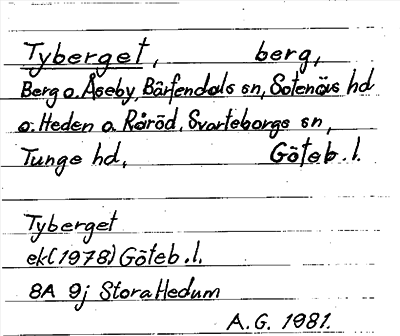 Tyberget, berg,
Berg o. Åseby, Bärfendals sn, Sotenäs hd
o. Heden o. Röröd, Svarteborgs sn,
Tunge hd, Göteb. l.
Tyberget
ek (1978) Göteb. l.
8A 9j Stora Hedum
A.G. 1981.